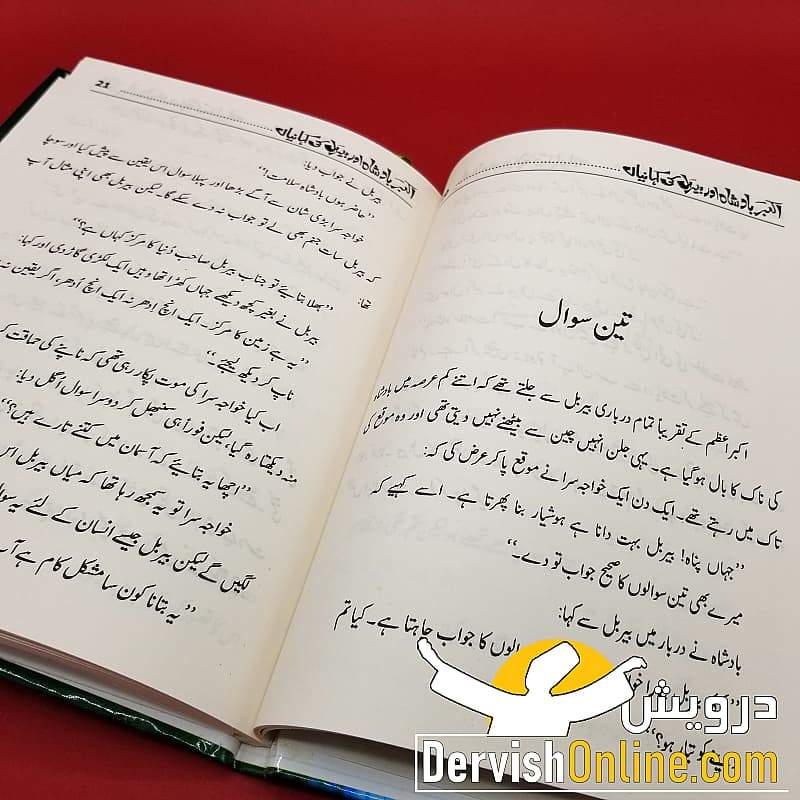 اکبر بادشاہ اور بیربل کی کہانیاں
تین سوال
اکبر اعظم کے تقریباً تمام درباری بیربل سے جلتے تھے کہ اتنے کم عرصہ میں بادشاہ
کی ناک کا بال ہو گیا ہے۔ یہی جلن انہیں چین سے بیٹھنے نہیں دیتی تھی اور وہ موقع کی
تاک میں رہتے تھے۔ ایک دن ایک خواجہ سرا نے موقع پا کر عرض کی کہ:
”جہاں پناہ! بیربل بہت دانا ہے ہوشیار بنا پھرتا ہے۔ اسے کہیے کہ
میرے بھی تین سوالوں کا صحیح جواب تو دے۔“
بادشاہ نے دربار میں بیربل سے کہا:
الوں کا جواب چاہتا ہے۔ کیا تم
کو تیار ہو؟“
21
اکبر بادشاہ اور بیربل کی کہانیاں
بیربل نے جواب دیا:
”حاضر ہوں بادشاہ سلامت!“
خواجہ سرا بڑی شان سے آگے بڑھا اور پہلا سوال اس یقین سے پیش کیا اور سوچا
کہ بیربل سات جنم بھی لے تو جواب نہ دے سکے گا۔ لیکن بیربل بھی اپنی مثال آپ
تھا:
”بھلا بتایئے تو جناب بیربل صاحب دُنیا کا مرکز کہاں ہے؟“
بیربل نے بغیر کچھ دیکھے جہاں کھڑا تھا وہیں ایک لکڑی گاڑ دی اور کہا:
”یہ ہے زمین کا مرکز۔ ایک انچ ادھر نہ ایک انچ اُدھر، اگر یقین نہ
ناپ کر دیکھ لیجیے۔“
اب کیا خواجہ سرا کی موت پکار رہی تھی کہ ناپنے کی حماقت کر
منہ دیکھتا رہ گیا، لیکن فوراً ہی سنبھل کر دوسرا سوال اُگل دیا:
”اچھا یہ بتایئے کہ آسمان میں کتنے تارے ہیں؟“
خواجہ سرا تو یہ سمجھ رہا تھا کہ میاں بیربل اس
لگیں گے لیکن بیربل جیسے انسان کے لئے یہ سوال
”یہ بتانا کون سا مشکل کام ہے آپ
درویش
DervishOnline.com